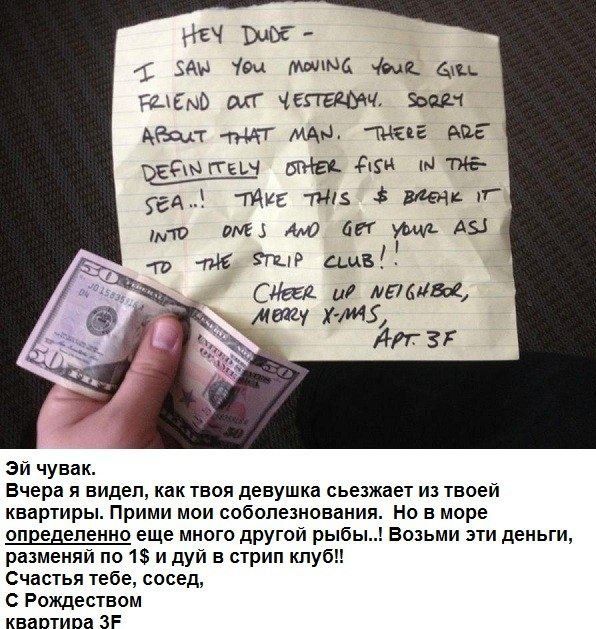 HEY DUDE -
I SAW YOU MOVING YOUR GIRL
FRIEND OUT YESTERDAY. SORRY
ABOUT THAT MAN. THERE ARE
DEFINITELY OTHER FISH IN THE
SEA..! TAKE THIS $ BREAK IT
INTO ONES AND GET YOUR ASS
TO THE STRIP CLUB!!
CHEER UP NEIGHBOR,
MERRY X-MAS,
APT. 3F
50
50
50
50
Эй чувак.
Вчера я видел, как твоя девушка сьезжает из твоей
квартиры. Прими мои соболезнования. Но в море
определенно еще много другой рыбы..! Возьми эти деньги,
разменяй по 1$ и дуй в стрип клуб!!
Счастья тебе, сосед,
С Рождеством
квартира 3F